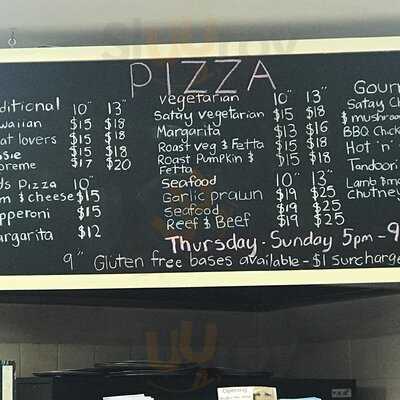 PIZZA
ditional 10" 13"
waiian $15 $18
at lovers $15 $18
sie $15 $18
preme $17 $20
ds Pizza 10"
m & cheese $15
pperoni $15
argarita $12
Vegetarian 10" 13"
Satay vegetarian $15 $18
Margarita $13 $16
Roast veg & Fetta $15 $18
Roast Pumpkin & $15 $18
Fetta
Seafood 10" 13"
Garlic prawn $19 $25
Seafood $19 $25
Reef & Beef $19 $25
Gour
Satay Ch
& mushroo
BBQ Chick
Hot 'n'
Tandoori
Lamb &m
Chutney
Thursday - Sunday 5pm - 9
9" Gluten free bases available - $1 Surcharge